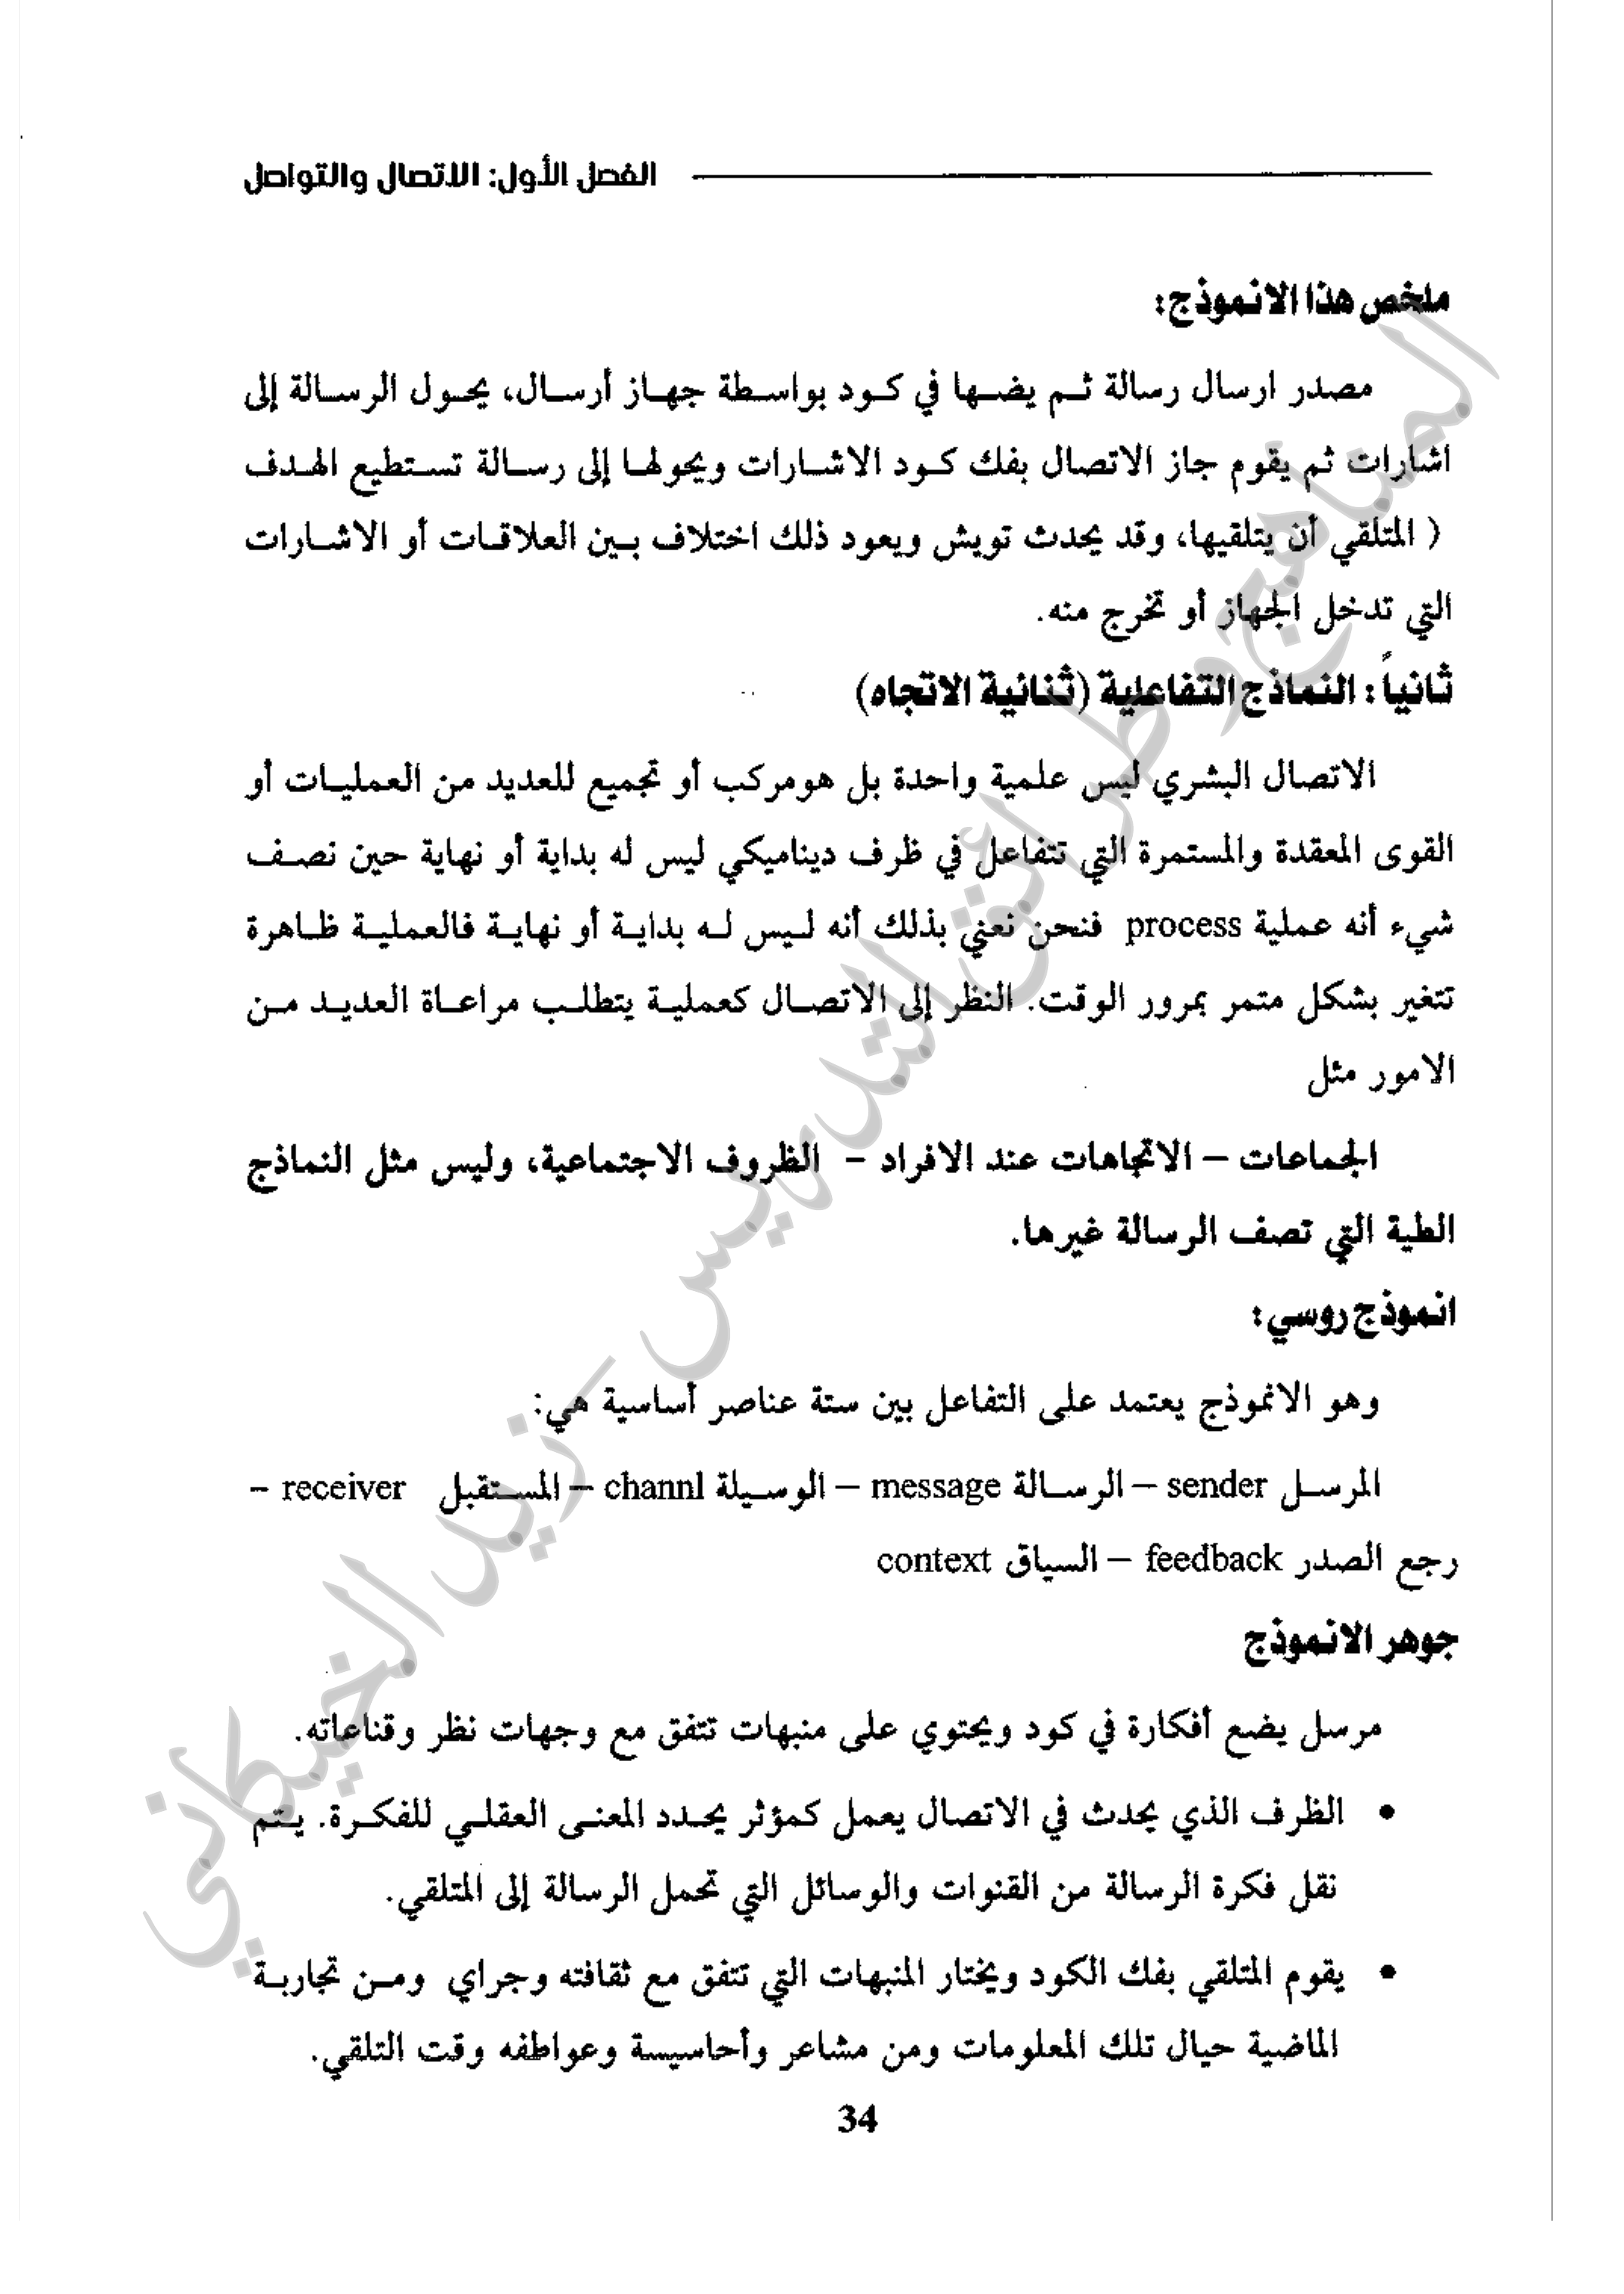 الفصل الأول: الاتصال والتواصل
ملخص هذا الانموذج:
مصدر ارسال رسالة ثم يضها في كود بواسطة جهاز أرسال، يحول الرسالة إلى
اشارات ثم يقوم جاز الاتصال بفك كود الاشارات ويحولها إلى رسالة تستطيع الهدف
( المتلقي أن يتلقيها، وقد يحدث تويش ويعود ذلك اختلاف بين العلاقات أو الاشارات
التي تدخل الجهاز أو تخرج منه.
ثانياً: النماذج التفاعلية (ثنائية الاتجاه)
الاتصال البشري ليس علمية واحدة بل هومركب أو تجميع للعديد من العمليات أو
القوى المعقدة والمستمرة التي تتفاعل في ظرف ديناميكي ليس له بداية أو نهاية حين نصف
شيء أنه عملية process فنحن نعني بذلك أنه ليس له بداية أو نهاية فالعملية ظاهرة
تتغير بشكل متمر بمرور الوقت. النظر إلى الاتصال كعملية يتطلب مراعاة العديد من
الامور مثل
الجماعات – الاتجاهات عند الافراد – الظروف الاجتماعية، وليس مثل النماذج
الطية التي تصف الرسالة غيرها.
انموذج روسي:
وهو الانموذج يعتمد على التفاعل بين ستة عناصر أساسية هي:
المرسل sender – الرسالة message – الوسيلة channl – المستقبل receiver –
رجع الصدر feedback – السياق context
جوهر الانموذج
مرسل يضع أفكارة في كود ويحتوي على منبهات تتفق مع وجهات نظر وقناعاته.
• الظرف الذي يحدث في الاتصال يعمل كمؤثر يحدد المعنى العقلي للفكرة. يتم
نقل فكرة الرسالة من القنوات والوسائل التي تحمل الرسالة إلى المتلقي.
• يقوم المتلقي بفك الكود ويختار المنبهات التي تتفق مع ثقافته وجراي ومن تجاربة
الماضية حيال تلك المعلومات ومن مشاعر وأحاسيسة وعواطفه وقت التلقي.
34
المناهج وطرائق التدريس - زيد الخيكاني